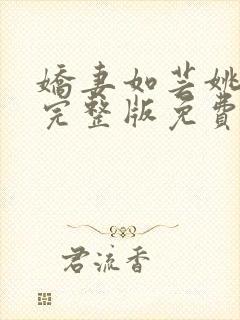 嬌妻如芸姚
完整版免費
君流香